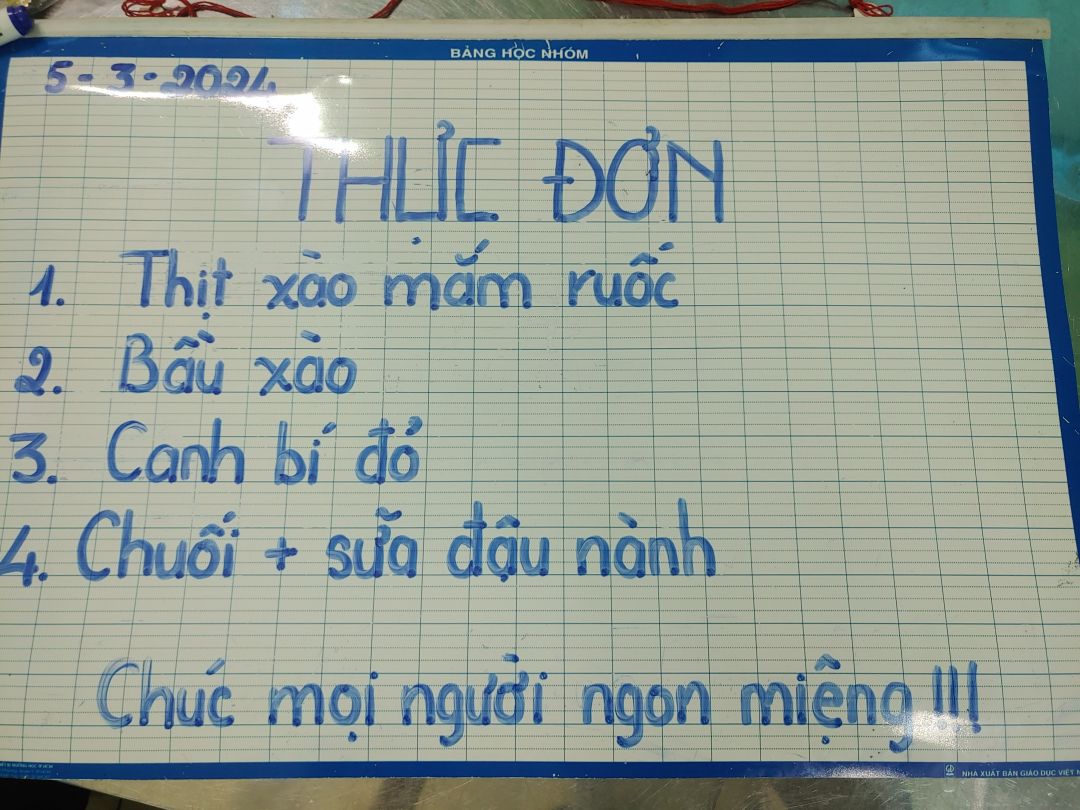 BẢNG HỌC NHÓM
5-3-2024
THỰC ĐƠN
1. Thịt xào mắm ruốc
2. Bầu xào
3. Canh bí đỏ
4. Chuối + sữa đậu nành
Chúc mọi người ngon miệng!!!
NHÀ XUẤT BẢN GIÁO DỤC VIỆT